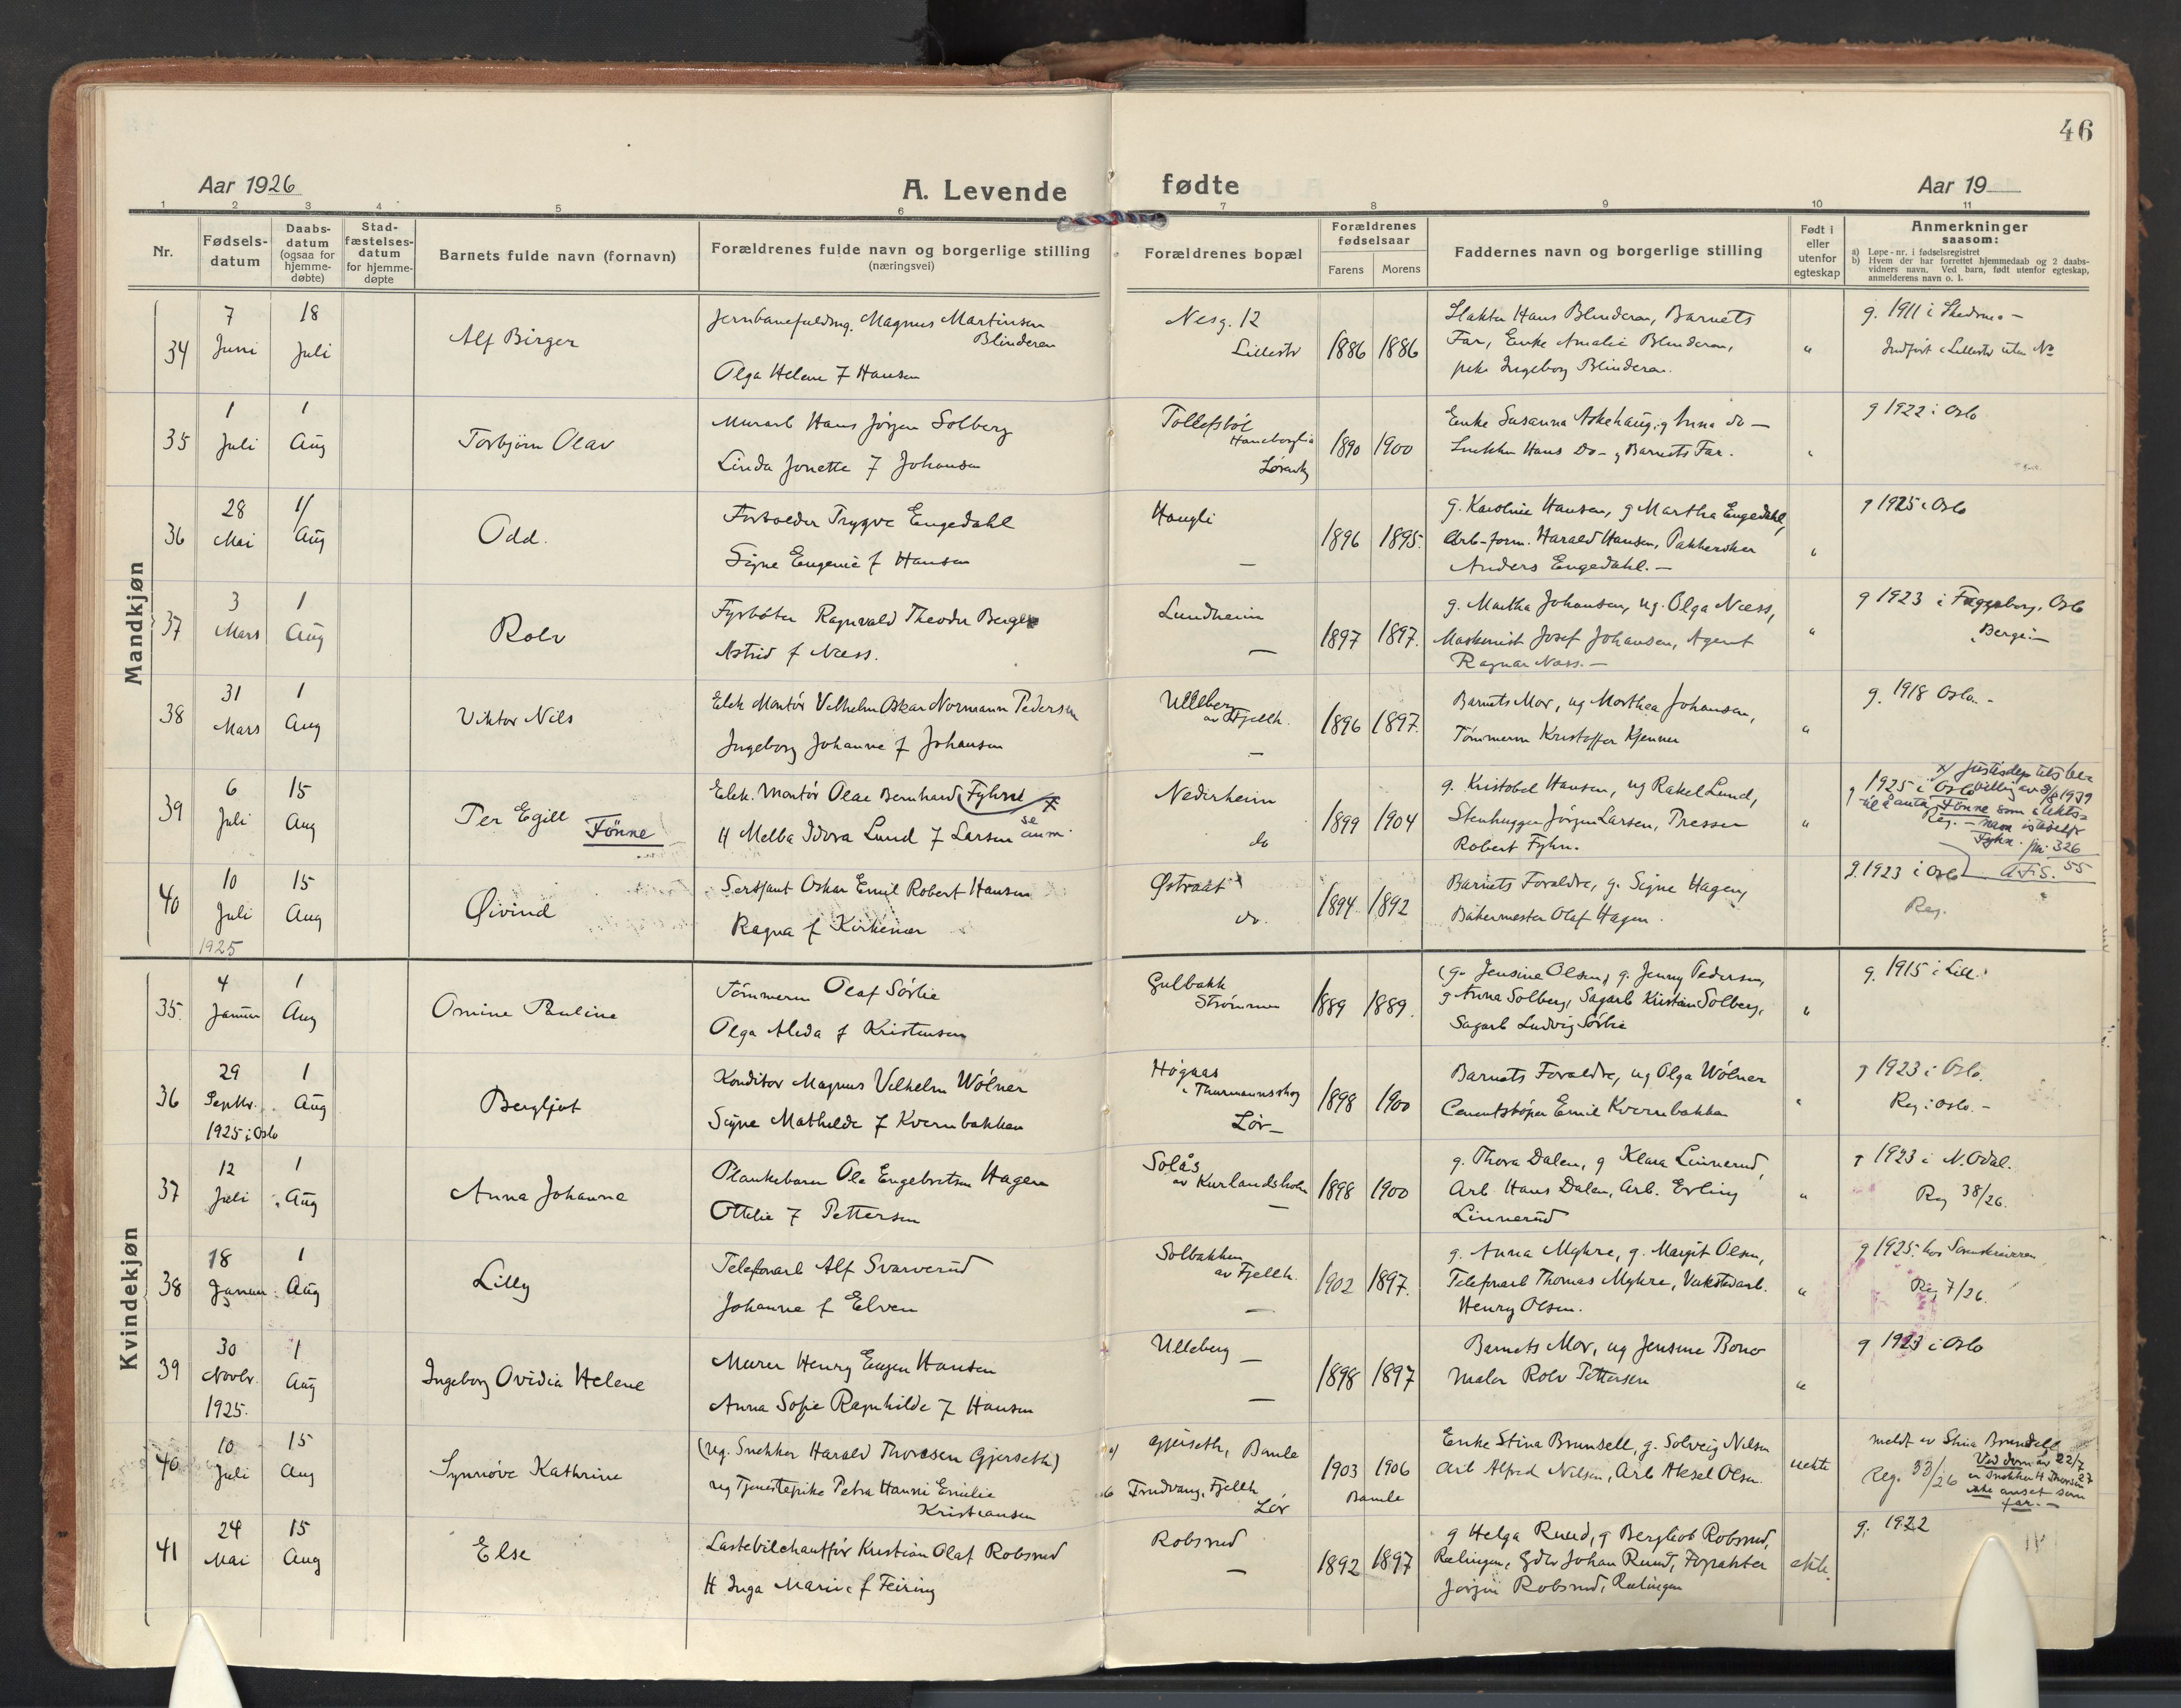 46
Aar 1926
A. Levende
fødte
Aar 19
1 2 3 4 5 6 7 8 9 10 11
Nr.
Fødsels-
datum
Daabs-
datum
(ogsaa for
hjemme-
døbte)
Stad-
fæstelses-
datum
for hjemme-
døpte
Barnets fulde navn (fornavn)
Forældrenes fulde navn og borgerlige stilling
(næringsvei)
Forældrenes bopæl
Forældrenes
fødselsaar
Farens
Morens
Faddernes navn og borgerlige stilling
Født i
eller
utenfor
egteskap
Anmerkninger
saasom:
a) Løpe-nr. i fødselsregistret
b) Hvem der har forrettet hjemmedaab og 2 daabs-
vidners navn. Ved barn, født utenfor egteskap,
anmelderens navn o. l.
Mandkjøn
34
7
Juni
18
Juli
Alf Birger
Magnus Martinsen
Blinderen
Olga Helene f Hansen
Nesg. 12
Lillestr
1886
1886
Slakter Hans Blinderen, Barnets
Far, Enke Amalie Blinderen,
pike Ingeborg Blinderen.
"
g. 1911 i Skedsmo -
Indført i Lillestr uten No
35
1
Juli
1
Aug
Torbjørn Olav
Murarb Hans Jørgen Solberg
Linda Jonette f Johansen
Tollefsbøl
Haneborglia
Lørensk
1890
1900
Enke Susanna Askehaug, g Anna do -
Snekker Hans Do - g Barnets Far.
"
g 1922 i Oslo
36
28
Mai
1/
Aug
Odd.
Trygve Engedahl
Signe Eugenie f Hansen
Haugli
-
1896
1895.
g. Karoline Hansen, g Martha Engedahl,
Arb-form. Harald Hansen, Pakhersker
Anders Engedahl. -
"
g 1925 i Oslo
37
3
Mars
1
Aug
Rolv
Fyrbøter Ragnvald Theodor Berge
Astrid f Næss.
Lundheim
-
1897
1897.
g. Martha Johansen, ug. Olga Næss,
Maskinist Josef Johansen, Agent
Ragnar Næss. -
"
g 1923 i Fagerborg, Oslo
Berge. -
38
31
Mars
1
Aug
Viktor Nils
Elek Montør Vilhelm Oskar Normann Pedersen
Ingeborg Johanne f Johansen
Ulleberg
av Fjellh.
-
1896
1897.
Barnets Mor, ug Morthea Johansen,
Tømmerm Kristoffer Kjenner
"
g. 1918 Oslo. -
39
6
Juli
15
Aug
Per Egill Fønne
Elek. Montør Olae Bernhard (Fyhn) x
se anm.
H Melba Idora Lund f Larsen
Nederheim
do
1899
1904
g. Kristobel Hansen, ug Rakel Lund,
Stenhugger Jørgen Larsen, Presser
Robert Fyhn.
"
g 1925 i Oslo
x/ Justisdep tets be-
villing av 3/8 1939
til å anta Fønne som slekts-
navn istedetfor
Fyhn. jnr. 326
Reg. -
40
10
Juli
15
Aug
Øivind
Sersjant Oskar Emil Robert Hansen
Ragna f Kirkenær
Østraat
do.
1894
1892
Barnets Foreldre, g. Signe Hagen,
Bakermester Olaf Hagen.
g. 1923 i Oslo
Reg.
Kvindekjøn
1925
35.
4
Januar
1
Aug
Omine Pauline
Tømmerm Olaf Sørlie
Olga Alida f Kristensen
Gulbakk
Strømmen
1889
1889.
(g. Jensine Olsen, g. Jenny Pedersen,
g Anna Solberg, Sagarb Kristian Solberg,
Sagarb Ludvig Sørlie
"
g. 1915 i Lill.
36
29
Septbr.
1925 i Oslo
1
Aug
Bergljot
Konditor Magnus Vilhelm Wølner
Signe Mathilde f Kvernbakken
Høgnas
i Thurmannsskog
Lør-
1898
1900
Barnets Foreldre, ug Olga Wølner
Cementstøper Emil Kvernbakken
"
g 1923 i Oslo.
Reg i Oslo. -
37
12
Juli
1
Aug
Anna Johanne
Plankebærer Ole Engebretsen Hagen
Ottilie f Pettersen
Solås
av Kurlandsholm
-
1898
1900
g. Thora Dalen, g Klara Linnerud,
Arb Hans Dalen, Arb. Erling
Linnerud
"
g 1923 i N. Odal.
Reg 38/26.
38
18
Januar
1
Aug
Lilly
Telefonarb Alf Svarverud
Johanne f Elven
Solbakken
av Fjellh.
-
1902
1897.
g. Anna Myhre, g. Margit Olsen,
Telefonarb Thomas Myhre, Verkstedarb.
Henry Olsen.
"
g 1925. hos Sorenskriveren
Reg 7/26.
39
30
Novbr.
1925.
1
Aug
Ingeborg Ovidia Helene
Murer Henry Eugen Hansen
Anna Sofie Ragnhilde f Hansen
Ulleberg -
-
1898
1897
Barnets Mor, ug Jensine Bono
Maler Rolv Pettersen
"
g 1923 i Oslo
40
10
Juli
15
Aug
Synnøve Kathrine
(ug. Snekker Harald Thoresen Gjerseth)
ug Tjenestepike Petra Hanni Emilie
Kristiansen
a) Gjerseth, Bamle
b Trudvang, Fjellh
Lør
1903
1906
Bamle
Enke Stina Brunsell, g. Solveig Nilsen
Arb Alfred Nilsen, Arb Aksel Olsen
uekte
meldt av Stina Brunsell
Reg. 33/26
Ved dom av 22/7 27
er Snekker H Thoresen
ikke anset som
far. -
41
24
Mai
15
Aug
Else
Lastebilchauffør Kristian Olaf Robsrud
H Inga Marie f Feiring
Robsrud
-
1892
1897
g Helga Ruud, g Bergliot Robsrud,
Rælingen, Gdbr Johan Ruud, Forpakter
Jørgen Robsrud, Rælingen
ekte.
g. 1922